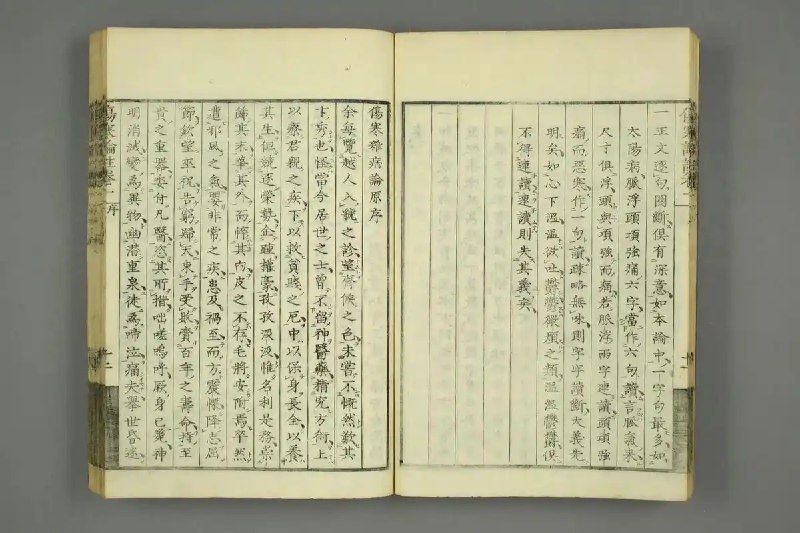 一正文逐句圈斷俱有深意如本論中一字句最多如
太陽病脈浮頭項強痛六字當作六句讀言脈氣來
尺寸俱浮頭與項強而痛若脈浮兩字連讀頭項強
痛而惡寒作一句讀踈略無味則字字讀斷大義先
明矣如心下溫溫欲吐鬱鬱微煩之類溫溫鬱鬱俱
不得連讀連讀則失其義矣
傷寒雜病論原序
余每覽越人入虢之診望齊侯之色未嘗不慨然歎其
才秀也怪當今居世之士曾不留神醫藥精究方術上
以療君親之疾下以救貧賤之厄中以保身長全以養
其生但競逐榮勢企踵權豪孜孜汲汲惟名利是務崇
飾其末棄其外而悴其內皮之不存毛將安附焉卒然
遭邪風之氣嬰非常之疾患及禍至而方震慄降志屈
節欽望巫祝告窮歸天束手受敗賚百年之壽命持至
貴之重器委付凡醫恣其所措咄嗟嗚呼厥身已斃神
明消滅變為異物幽潛重泉徒為啼泣痛夫舉世昏迷
傷寒論註卷一序